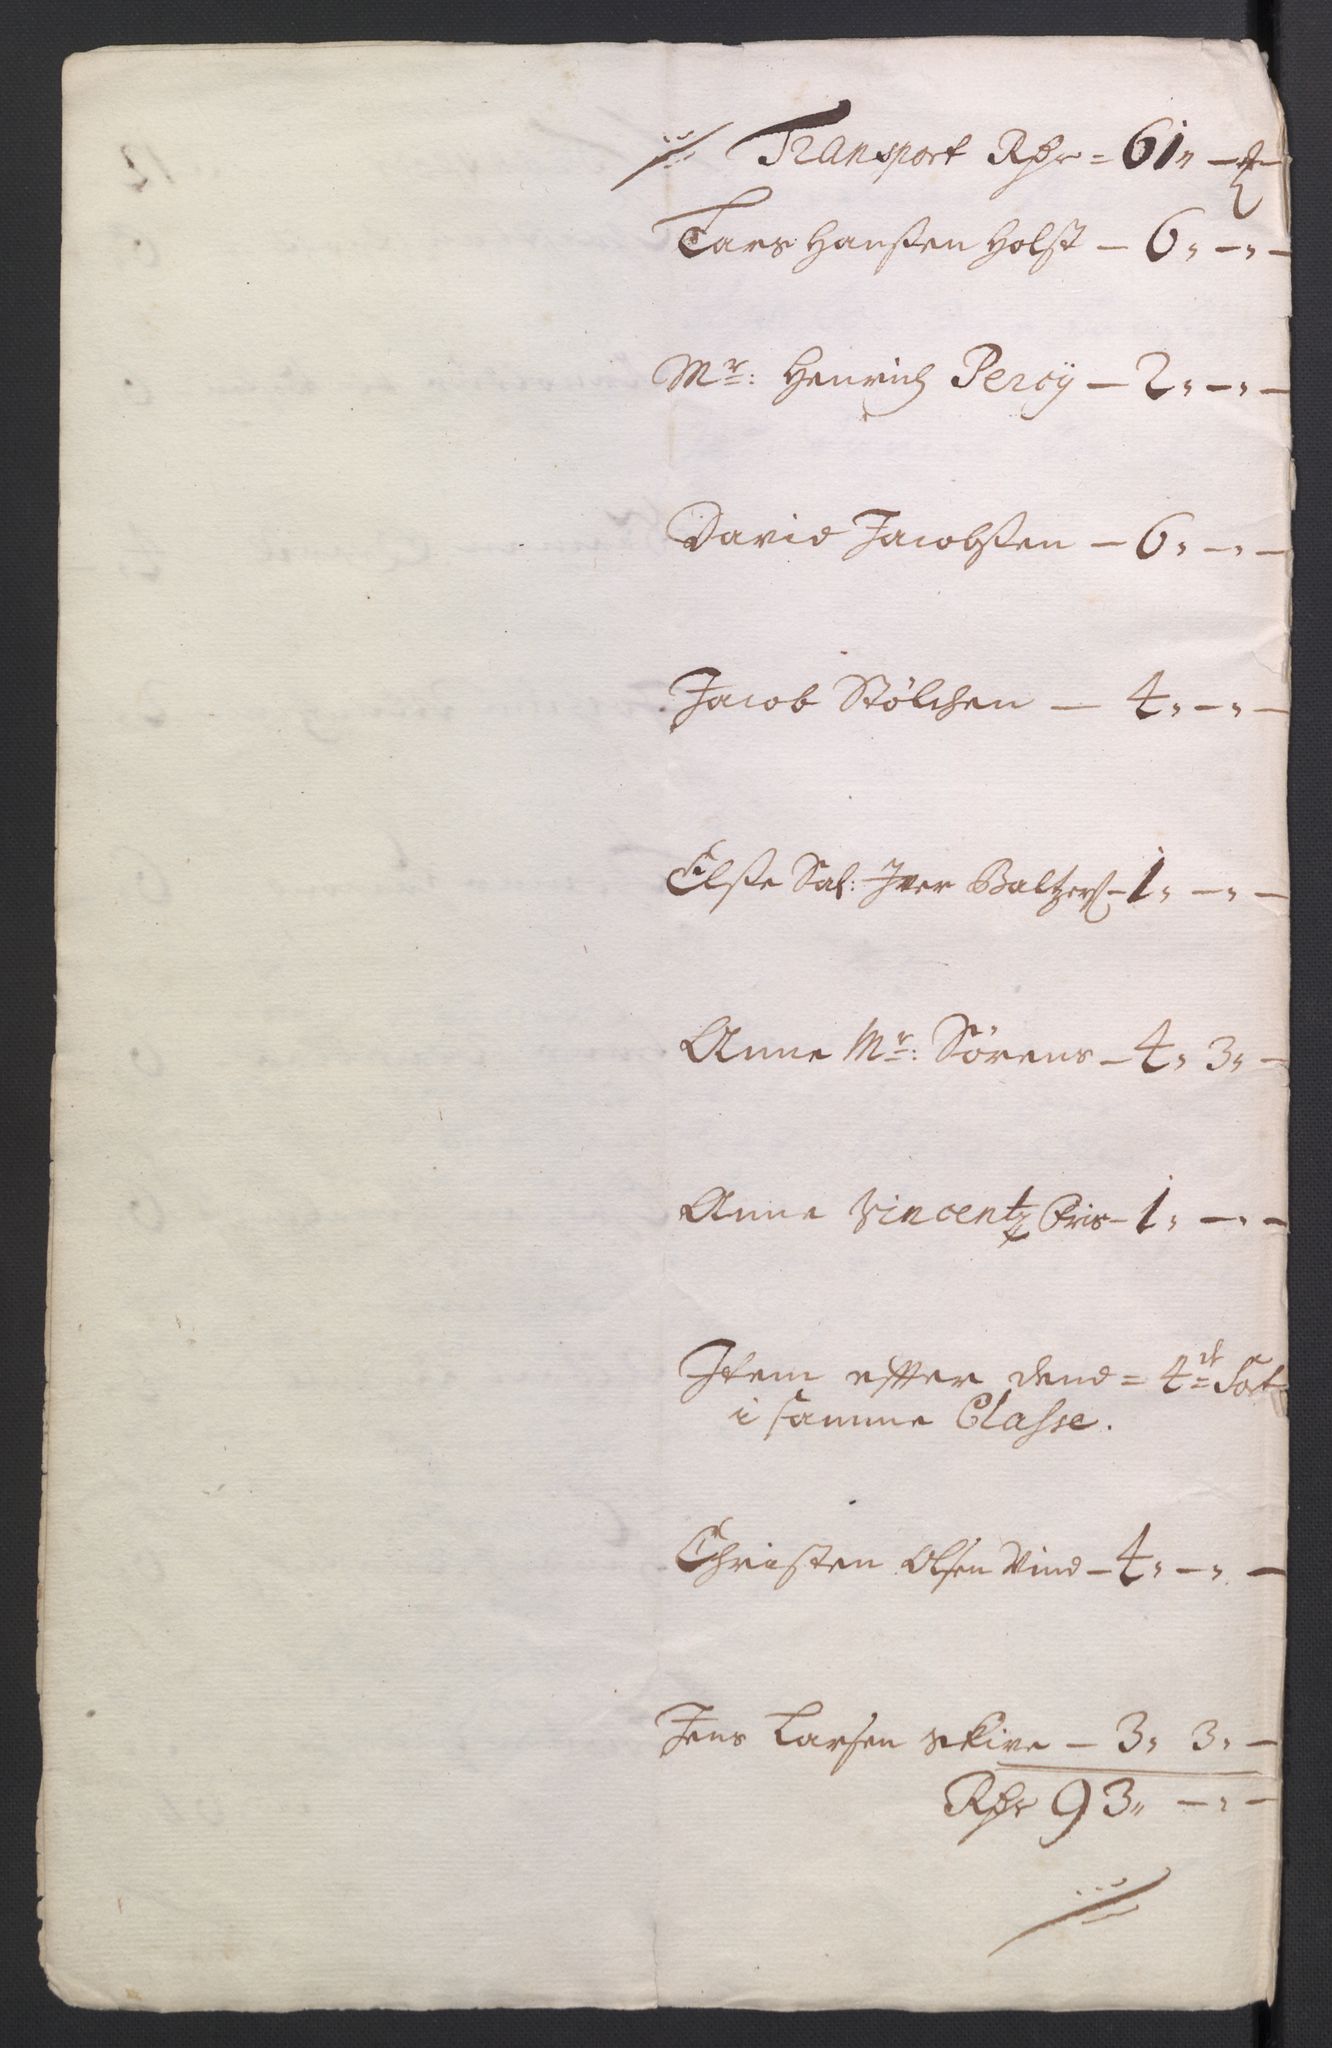 Transport Rdr = 61" —
Lars Hanssen Holst — 6" — " —
Mr: Henrich Percÿ — 2" — " —
David Jacobssen — 6" — " —
Jacob Stölchen — 4" — " —
Elsse Sal: Iver Baltzers — 1" — " —
Anne Mr: Sörens — 4" 3" —
Anne Vincentz — 1" — " —
Item effter dend = 4de Sort
i samme Classe.
Christen Olsen Vind — 4" — " —
Jens Larsen Skive — 3" 3" —
Rdr 93" — " —